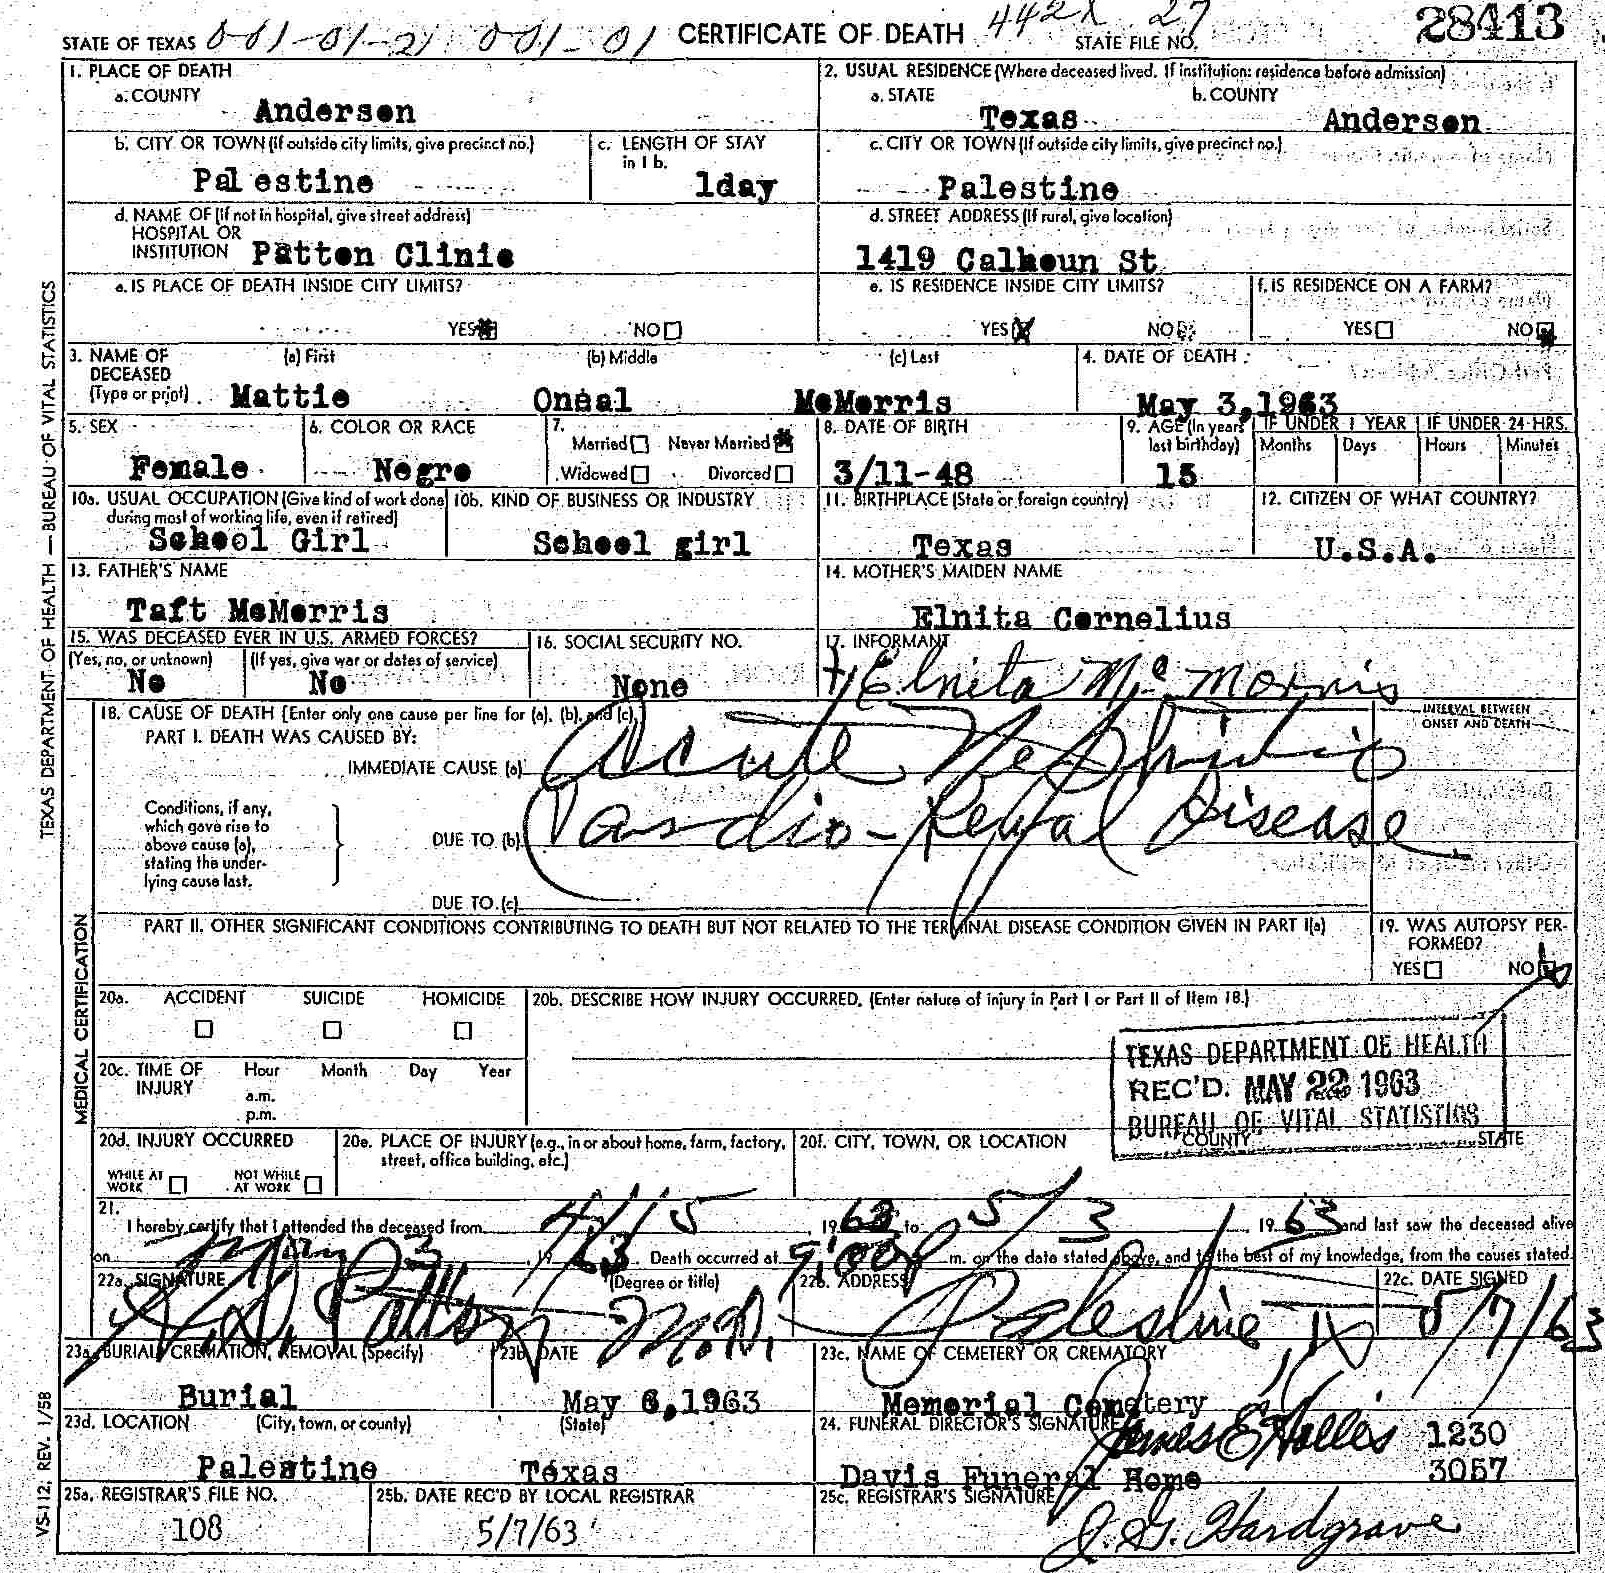 STATE OF TEXAS 001-01-21 001-01 CERTIFICATE OF DEATH 442X 27 STATE FILE NO. 28413
1. PLACE OF DEATH
a. COUNTY
Anderson
2. USUAL RESIDENCE (Where deceased lived. If institution: residence before admission)
a. STATE b. COUNTY
Texas Anderson
b. CITY OR TOWN (If outside city limits, give precinct no.) c. LENGTH OF STAY in 1 b.
Palestine 1day
c. CITY OR TOWN (If outside city limits, give precinct no.)
Palestine
d. NAME OF (If not in hospital, give street address)
HOSPITAL OR
INSTITUTION Patton Clinic
d. STREET ADDRESS (If rural, give location)
1419 Calhoun St
e. IS PLACE OF DEATH INSIDE CITY LIMITS?
YES NO
e. IS RESIDENCE INSIDE CITY LIMITS? f. IS RESIDENCE ON A FARM?
YES X NO YES NO
3. NAME OF DECEASED (Type or print) (a) First (b) Middle (c) Last 4. DATE OF DEATH
Mattie Oneal McMorris May 3,1963
5. SEX 6. COLOR OR RACE 7. Married Never Married Widowed Divorced 8. DATE OF BIRTH 9. AGE (In years last birthday) IF UNDER 1 YEAR IF UNDER 24 HRS.
Months Days Hours Minutes
Female Negro 3/11-48 15
10a. USUAL OCCUPATION (Give kind of work done during most of working life, even if retired) 10b. KIND OF BUSINESS OR INDUSTRY 11. BIRTHPLACE (State or foreign country) 12. CITIZEN OF WHAT COUNTRY?
School Girl School girl Texas U.S.A.
13. FATHER'S NAME 14. MOTHER'S MAIDEN NAME
Taft McMorris Elnita Cornelius
15. WAS DECEASED EVER IN U.S. ARMED FORCES? 16. SOCIAL SECURITY NO. 17. INFORMANT
(Yes, no, or unknown) (If yes, give war or dates of service)
No No None Elnita McMorris
18. CAUSE OF DEATH [Enter only one cause per line for (a), (b), and (c).] INTERVAL BETWEEN ONSET AND DEATH
PART I. DEATH WAS CAUSED BY:
IMMEDIATE CAUSE (a) Acute Nephritis
Conditions, if any, which gave rise to above cause (a), stating the underlying cause last.
DUE TO (b) Cardio-Renal Disease
DUE TO (c)
PART II. OTHER SIGNIFICANT CONDITIONS CONTRIBUTING TO DEATH BUT NOT RELATED TO THE TERMINAL DISEASE CONDITION GIVEN IN PART I(a)
19. WAS AUTOPSY PERFORMED?
YES NO
20a. ACCIDENT SUICIDE HOMICIDE 20b. DESCRIBE HOW INJURY OCCURRED. (Enter nature of injury in Part I or Part II of Item 18.)
20c. TIME OF INJURY Hour Month Day Year
a.m.
p.m.
TEXAS DEPARTMENT OF HEALTH
REC'D. MAY 22 1963
BUREAU OF VITAL STATISTICS
20d. INJURY OCCURRED 20e. PLACE OF INJURY (e.g., in or about home, farm, factory, street, office building, etc.) 20f. CITY, TOWN, OR LOCATION COUNTY STATE
WHILE AT WORK NOT WHILE AT WORK
21.
I hereby certify that I attended the deceased from 4/15 1963 to 5/3 1963 and last saw the deceased alive
on May 3 1963. Death occurred at 9:00 P m. on the date stated above, and to the best of my knowledge, from the causes stated.
22a. SIGNATURE (Degree or title) 22b. ADDRESS 22c. DATE SIGNED
Patton M.D. Palestine, Tx 5/7/63
23a. BURIAL, CREMATION, REMOVAL (Specify) 23b. DATE 23c. NAME OF CEMETERY OR CREMATORY
Burial May 6,1963 Memorial Cemetery
23d. LOCATION (City, town, or county) (State) 24. FUNERAL DIRECTOR'S SIGNATURE
James E Hollis 1230
Palestine Texas Davis Funeral Home 3057
25a. REGISTRAR'S FILE NO. 25b. DATE REC'D BY LOCAL REGISTRAR 25c. REGISTRAR'S SIGNATURE
108 5/7/63 J. G. Hardgrave
TEXAS DEPARTMENT OF HEALTH — BUREAU OF VITAL STATISTICS
MEDICAL CERTIFICATION
VS-112, REV. 1/58